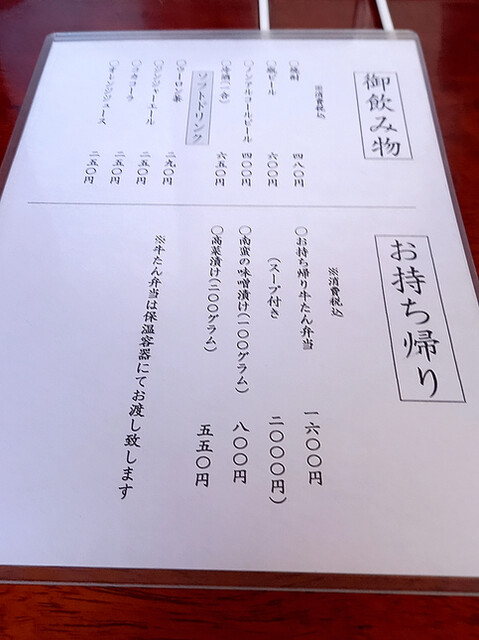 御飲み物
※消費税込
〇焼酎 四八〇円
〇瓶ビール 六〇〇円
〇ノンアルコールビール 四〇〇円
〇冷酒(一合) 六五〇円
ソフトドリンク
〇ウーロン茶 二九〇円
〇ジンジャーエール 二五〇円
〇コカコーラ 二五〇円
〇オレンジジュース 二五〇円
お持ち帰り
※消費税込
〇お持ち帰り牛たん弁当 一六〇〇円
(スープ付き 二〇〇〇円)
〇南蛮の味噌漬け(一〇〇グラム) 八〇〇円
〇高菜漬け(二〇〇グラム) 五五〇円
※牛たん弁当は保温容器にてお渡し致します